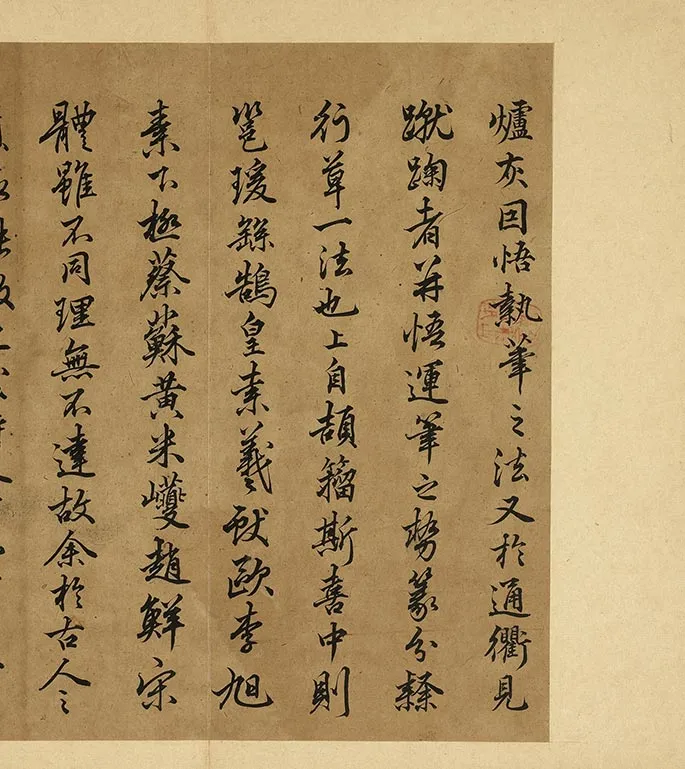 爐灰囙悟執筆之法又於通衢見
蹴踘者并悟運筆之勢篆分隸
行草一法也上自頡籀斯喜中則
邕瑗繇鵠皇索羲獻歐李旭
素下極蔡蘇黃米巙趙鮮宋
體雖不同理無不達故余於古人之